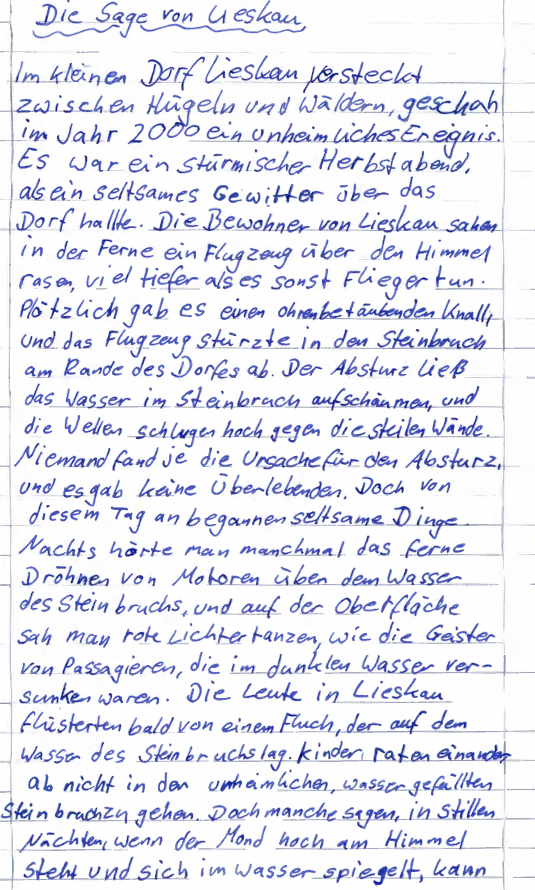 Die Sage von Lieskau
Im kleinen Dorf Lieskau versteckt
zwischen Hügeln und Wäldern, geschah
im Jahr 2000 ein unheimliches Ereignis.
Es war ein stürmischer Herbstabend,
als ein seltsames Gewitter über das
Dorf hallte. Die Bewohner von Lieskau sahen
in der Ferne ein Flugzeug über den Himmel
rasen, viel tiefer als es sonst Flieger tun.
Plötzlich gab es einen ohrenbetäubenden Knall,
und das Flugzeug stürzte in den Steinbruch
am Rande des Dorfes ab. Der Absturz ließ
das Wasser im Steinbruch aufschäumen, und
die Wellen schlugen hoch gegen die steilen Wände.
Niemand fand je die Ursache für den Absturz,
und es gab keine Überlebenden. Doch von
diesem Tag an begannen seltsame Dinge.
Nachts hörte man manchmal das ferne
Dröhnen von Motoren über dem Wasser
des Steinbruchs, und auf der Oberfläche
sah man rote Lichter tanzen, wie die Geister
von Passagieren, die im dunklen Wasser ver-
sunken waren. Die Leute in Lieskau
flüsterten bald von einem Fluch, der auf dem
Wasser des Steinbruchs lag. Kinder raten einander
ab nicht in den unheimlichen, wassergefüllten
Steinbruch zu gehen. Doch manche sagen, in stillen
Nächten, wenn der Mond hoch am Himmel
steht und sich im Wasser spiegelt, kann